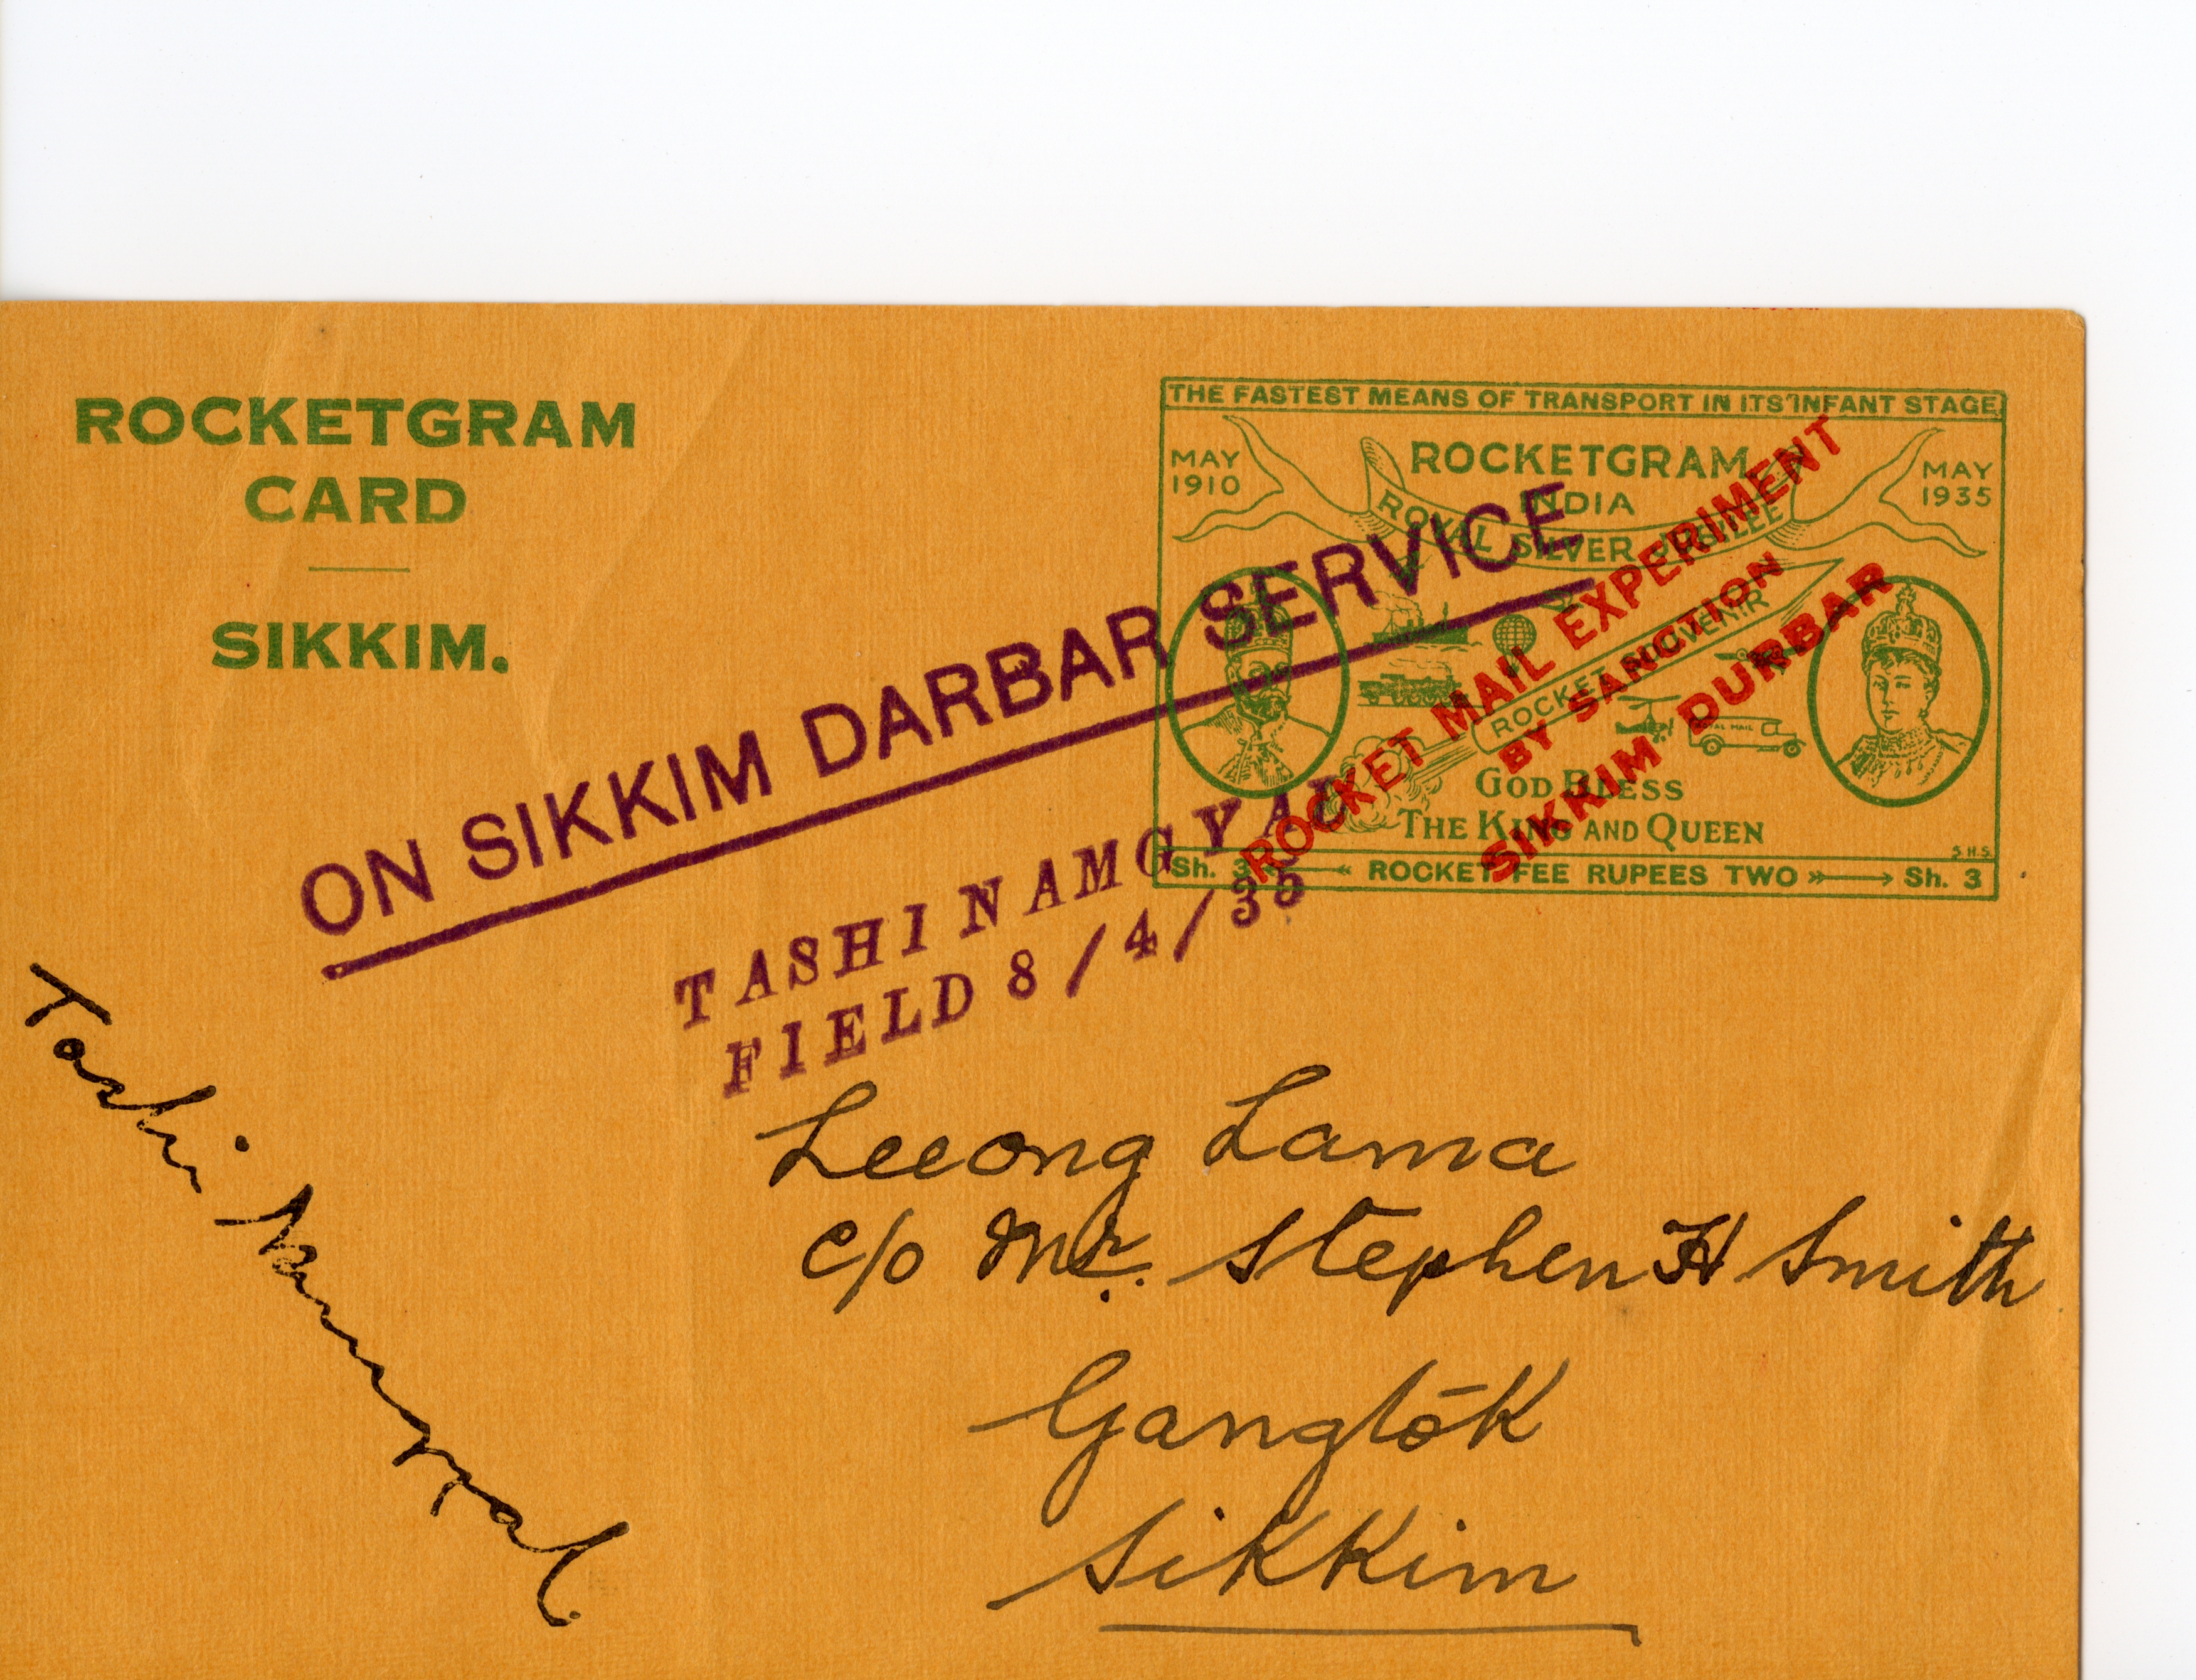 ROCKETGRAM
CARD
SIKKIM.
THE FASTEST MEANS OF TRANSPORT IN ITS INFANT STAGE
MAY
1910
ROCKETGRAM
INDIA
MAY
1935
ROYAL SILVER JUBILEE
ROCKET SOUVENIR
ROYAL MAIL
GOD BLESS
THE KING AND QUEEN
S.H.S.
Sh. 3 ROCKET FEE RUPEES TWO Sh. 3
ROCKET MAIL EXPERIMENT
BY SANCTION
SIKKIM DURBAR
ON SIKKIM DARBAR SERVICE
TASHI NAMGYAL
FIELD 8/4/35
Tashi Namgyal.
Leeong Lama
c/o Mr. Stephen H Smith
Gangtōk
Sikkim